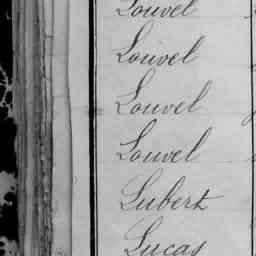 Louvel
Louvel
Louvel
Louvel
Lubert
Lucas